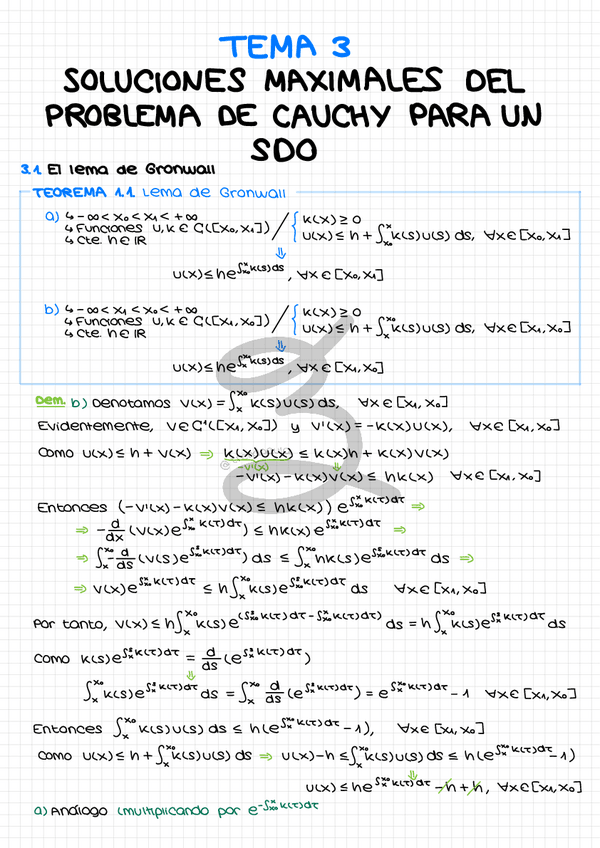 TEMA 3
SOLUCIONES MAXIMALES DEL
PROBLEMA DE CAUCHY PARA UN
SDO
3.1. El lema de Gronwall
TEOREMA 1.1. Lema de Gronwall
a) ↳ -∞ < x₀ < x₁ < +∞
↳ Funciones u, k ∈ C([x₀, x₁])
↳ Cte. h ∈ IR
/ { k(x) ≥ 0
u(x) ≤ h + ∫_{x₀}^{x} k(s)u(s) ds, ∀x ∈ [x₀, x₁]
⇓
u(x) ≤ h e^{∫_{x₀}^{x} k(s)ds}, ∀x ∈ [x₀, x₁]
b) ↳ -∞ < x₁ < x₀ < +∞
↳ Funciones u, k ∈ C([x₁, x₀])
↳ Cte. h ∈ IR
/ { k(x) ≥ 0
u(x) ≤ h + ∫_{x}^{x₀} k(s)u(s) ds, ∀x ∈ [x₁, x₀]
⇓
u(x) ≤ h e^{∫_{x}^{x₀} k(s)ds}, ∀x ∈ [x₁, x₀]
Dem. b) Denotamos v(x) = ∫_{x}^{x₀} k(s)u(s) ds, ∀x ∈ [x₁, x₀]
Evidentemente, v ∈ C¹([x₁, x₀]) y v'(x) = -k(x)u(x), ∀x ∈ [x₁, x₀]
Como u(x) ≤ h + v(x) ⇒ k(x)u(x) ≤ k(x)h + k(x)v(x)
-v'(x) ⇓
-v'(x) - k(x)v(x) ≤ hk(x) ∀x ∈ [x₁, x₀]
Entonces (-v'(x) - k(x)v(x) ≤ hk(x)) e^{∫_{x₀}^{x} k(τ)dτ} ⇒
⇒ -d/dx (v(x)e^{∫_{x₀}^{x} k(τ)dτ}) ≤ hk(x)e^{∫_{x₀}^{x} k(τ)dτ} ⇒
⇒ ∫_{x}^{x₀} -d/ds (v(s)e^{∫_{x₀}^{s} k(τ)dτ}) ds ≤ ∫_{x}^{x₀} hk(s)e^{∫_{x₀}^{s} k(τ)dτ} ds ⇒
⇒ v(x)e^{∫_{x₀}^{x} k(τ)dτ} ≤ h∫_{x}^{x₀} k(s)e^{∫_{x₀}^{s} k(τ)dτ} ds ∀x ∈ [x₁, x₀]
Por tanto, v(x) ≤ h∫_{x}^{x₀} k(s)e^{(∫_{x₀}^{s} k(τ)dτ - ∫_{x₀}^{x} k(τ)dτ)} ds = h∫_{x}^{x₀} k(s)e^{∫_{x}^{s} k(τ)dτ} ds
Como k(s)e^{∫_{x}^{s} k(τ)dτ} = d/ds (e^{∫_{x}^{s} k(τ)dτ})
⇓
∫_{x}^{x₀} k(s)e^{∫_{x}^{s} k(τ)dτ} ds = ∫_{x}^{x₀} d/ds (e^{∫_{x}^{s} k(τ)dτ}) = e^{∫_{x}^{x₀} k(τ)dτ} - 1 ∀x ∈ [x₁, x₀]
Entonces ∫_{x}^{x₀} k(s)u(s) ds ≤ h(e^{∫_{x}^{x₀} k(τ)dτ} - 1), ∀x ∈ [x₁, x₀]
Como u(x) ≤ h + ∫_{x}^{x₀} k(s)u(s) ds ⇒ u(x) - h ≤ ∫_{x}^{x₀} k(s)u(s) ds ≤ h(e^{∫_{x}^{x₀} k(τ)dτ} - 1)
⇓
u(x) ≤ he^{∫_{x}^{x₀} k(τ)dτ} - h + h, ∀x ∈ [x₁, x₀]
a) Análogo (multiplicando por e^{-∫_{x₀}^{x} k(τ)dτ}